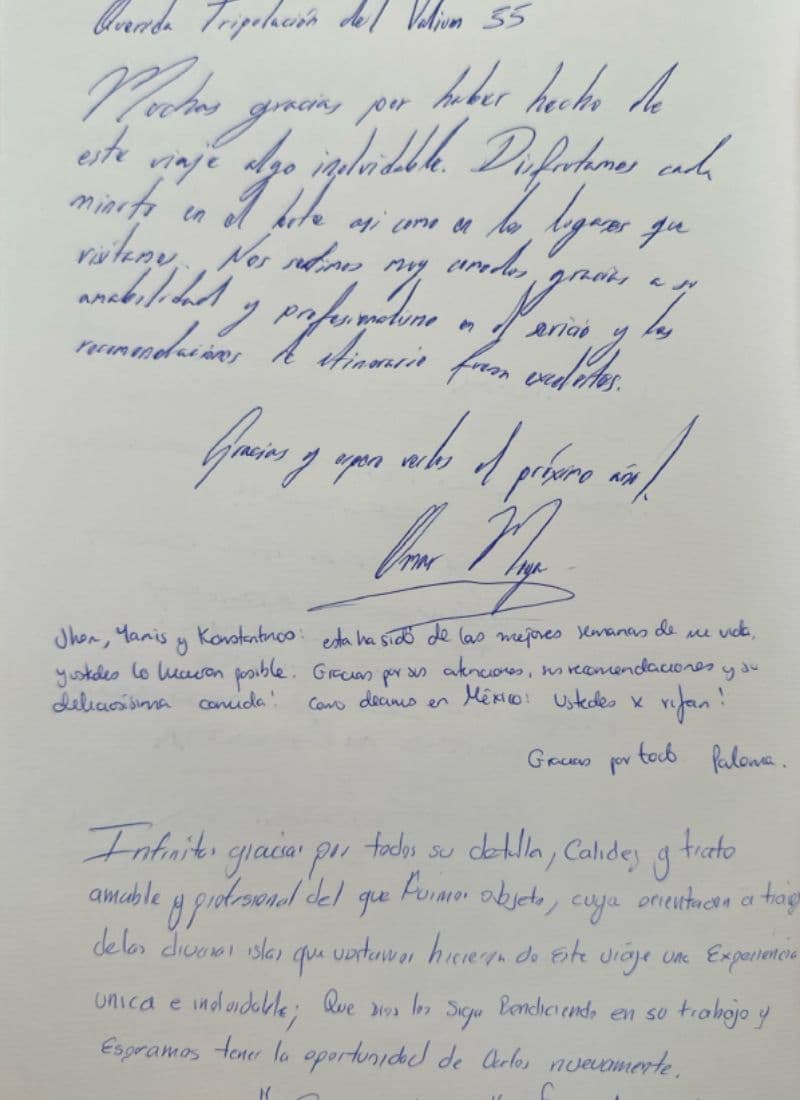 Querida Tripolación del Valium 55
Muchas gracias por haber hecho de
este viaje algo inolvidable. Disfrutamos cada
minuto en el bote asi como en los lugares que
visitamos. Nos sentimos muy comodos gracias a su
amabilidad y profesionalismo en el servicio y las
recomendaciones de itinerario fueron excelentes.
Gracias y espero verlos el próximo año!
Omar
Jhon, Yanis y Konstantinos: esta ha sido de las mejores semanas de mi vida,
y ustedes lo hicieron posible. Gracias por sus atenciones, sus recomendaciones y su
deliciosísima comida! Como decimos en México: Ustedes x rifan!
Gracias por todo Paloma.
Infinitas gracias por todos su detalla, Calidez y trato
amable y profesional del que fuimos objeto, cuya orientacion a traves
de las diversas islas que visitamos hicieron de este viaje una Experiencia
unica e inolvidable; Que dios los siga Bendiciendo en su trabajo y
Esperamos tener la oportunidad de verlos nuevamente.